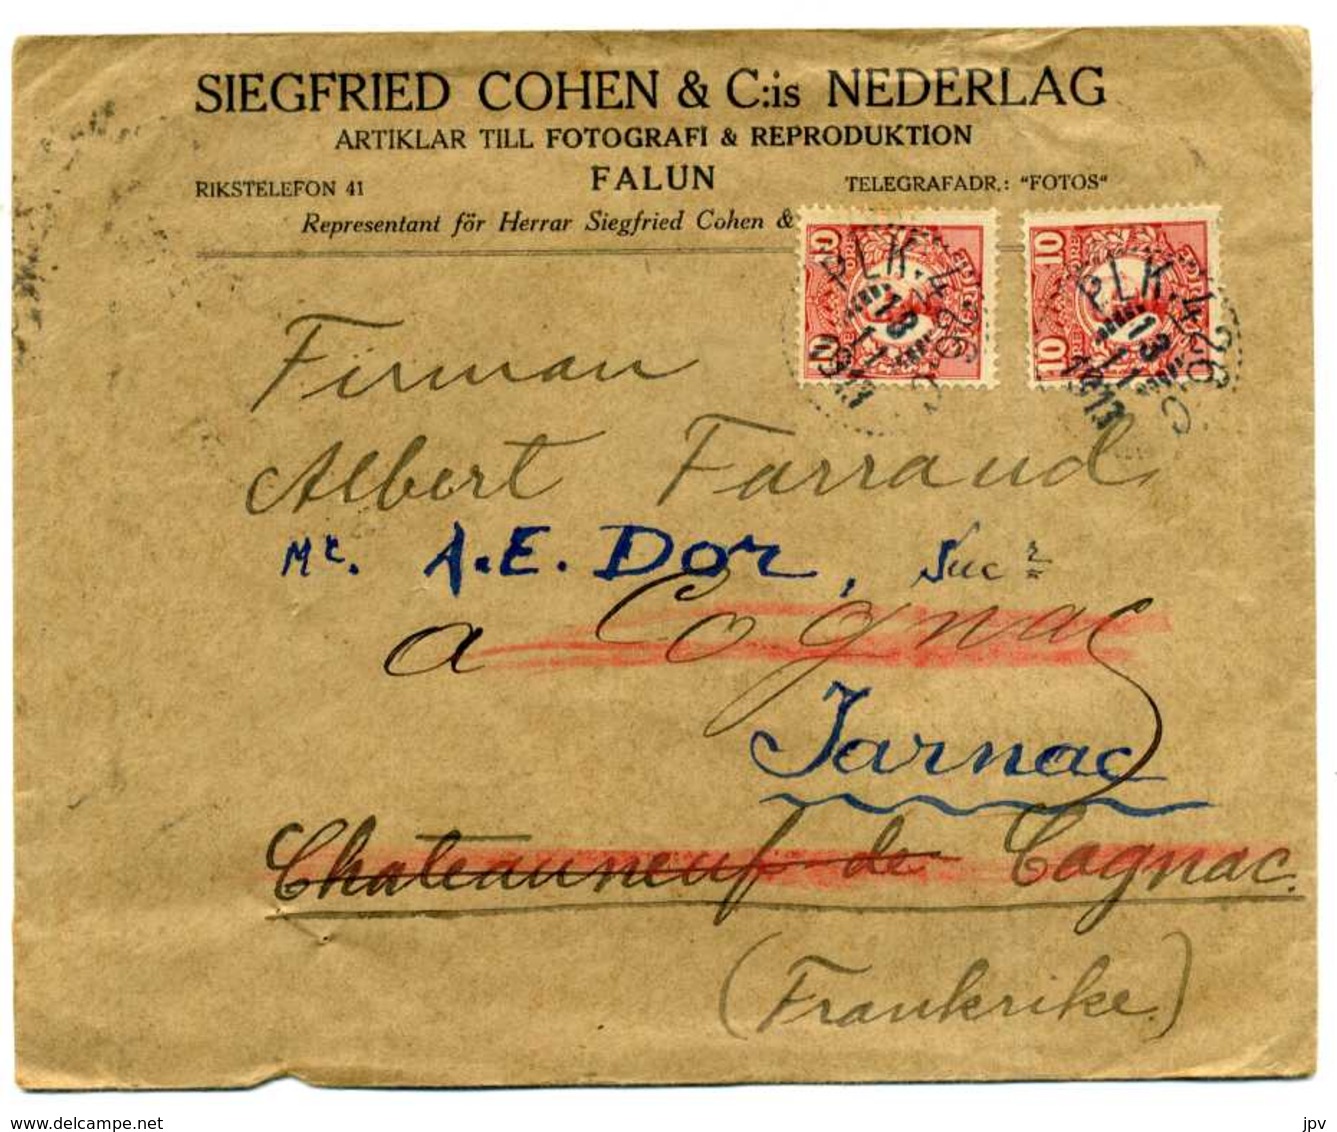 SIEGFRIED COHEN & C:is NEDERLAG
ARTIKLAR TILL FOTOGRAFI & REPRODUKTION
RIKSTELEFON 41 FALUN TELEGRAFADR.: "FOTOS"
Representant för Herrar Siegfried Cohen &
10 ÖRE 10
10 ÖRE 10
PLK. 426 C
13
11
1913
PLK. 426 C
13
11
1913
Firman
Albert Farraud
A.E. Dor, Sucr
a Cognac
Jarnac
Chateauneuf de Cognac.
(Frankrike.)
www.delcampe.net
jpv